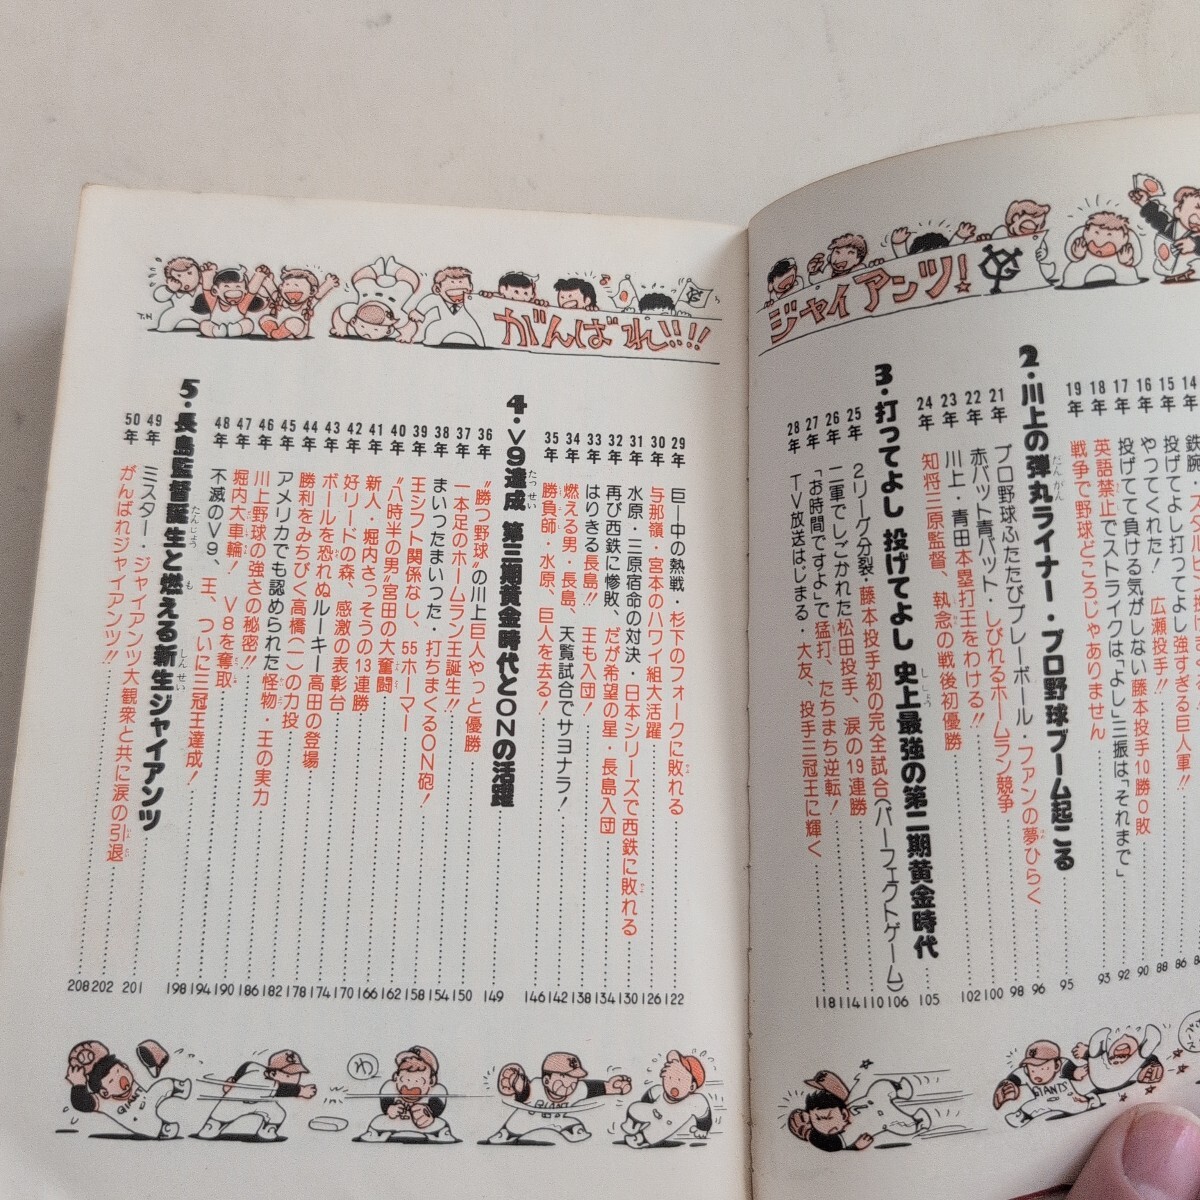 ジャイアンツ!
14年
15年
16年 やってくれた! 広瀬投手!!
17年 投げてて負ける気がしない藤本投手10勝0敗
18年 英語禁止でストライクは「よし」三振は「それまで」
19年 戦争で野球どころじゃありません
84
86
88
90
92
93
2・川上の弾丸ライナー・プロ野球ブーム起こる 95
プロ野球ふたたびプレーボール・ファンの夢ひらく 96
21年 赤バット青バット・しびれるホームラン競争 98
22年 川上・青田本塁打王をわける!! 100
23年 知将三原監督、執念の戦後初優勝 102
24年
3・打ってよし 投げてよし 史上最強の第二期黄金時代 105
2リーグ分裂・藤本投手初の完全試合(パーフェクトゲーム) 106
25年 二軍でしごかれた松田投手、涙の19連勝 110
26年 「お時間ですよ」で猛打、たちまち逆転! 114
27年 TV放送はじまる・大友、投手三冠王に輝く 118
28年
がんばれ!!!
T.H
29年 巨―中の熱戦・杉下のフォークに敗れる 122
30年 与那嶺・宮本のハワイ組大活躍 126
31年 水原・三原宿命の対決・日本シリーズで西鉄に敗れる 130
32年 再び西鉄に惨敗、だが希望の星・長島入団 134
33年 はりきる長島!! 王も入団! 138
34年 燃える男・長島、天覧試合でサヨナラ! 142
35年 勝負師・水原、巨人を去る! 146
4・V9達成 第三期黄金時代とONの活躍 149
36年 “勝つ野球”の川上巨人やっと優勝 150
37年 一本足のホームラン王誕生!! 154
38年 まいったまいった・打ちまくるON砲! 158
39年 王シフト関係なし、55ホーマー 162
40年 “八時半の男”宮田の大奮闘 166
41年 新人・堀内さっそうの13連勝 170
42年 好リードの森、感激の表彰台 174
43年 ボールを恐れぬルーキー高田の登場 178
44年 勝利をみちびく高橋(一)の力投 182
45年 アメリカでも認められた怪物・王の実力 186
46年 川上野球の強さの秘密!! 190
47年 堀内大車輪! V8を奪取 194
48年 不滅のV9、王、ついに三冠王達成! 198
5・長島監督誕生と燃える新生ジャイアンツ 201
49年 ミスター・ジャイアンツ大観衆と共に涙の引退 202
50年 がんばれジャイアンツ!! 208
わ
GIANTS
GIANTS
GIANTS